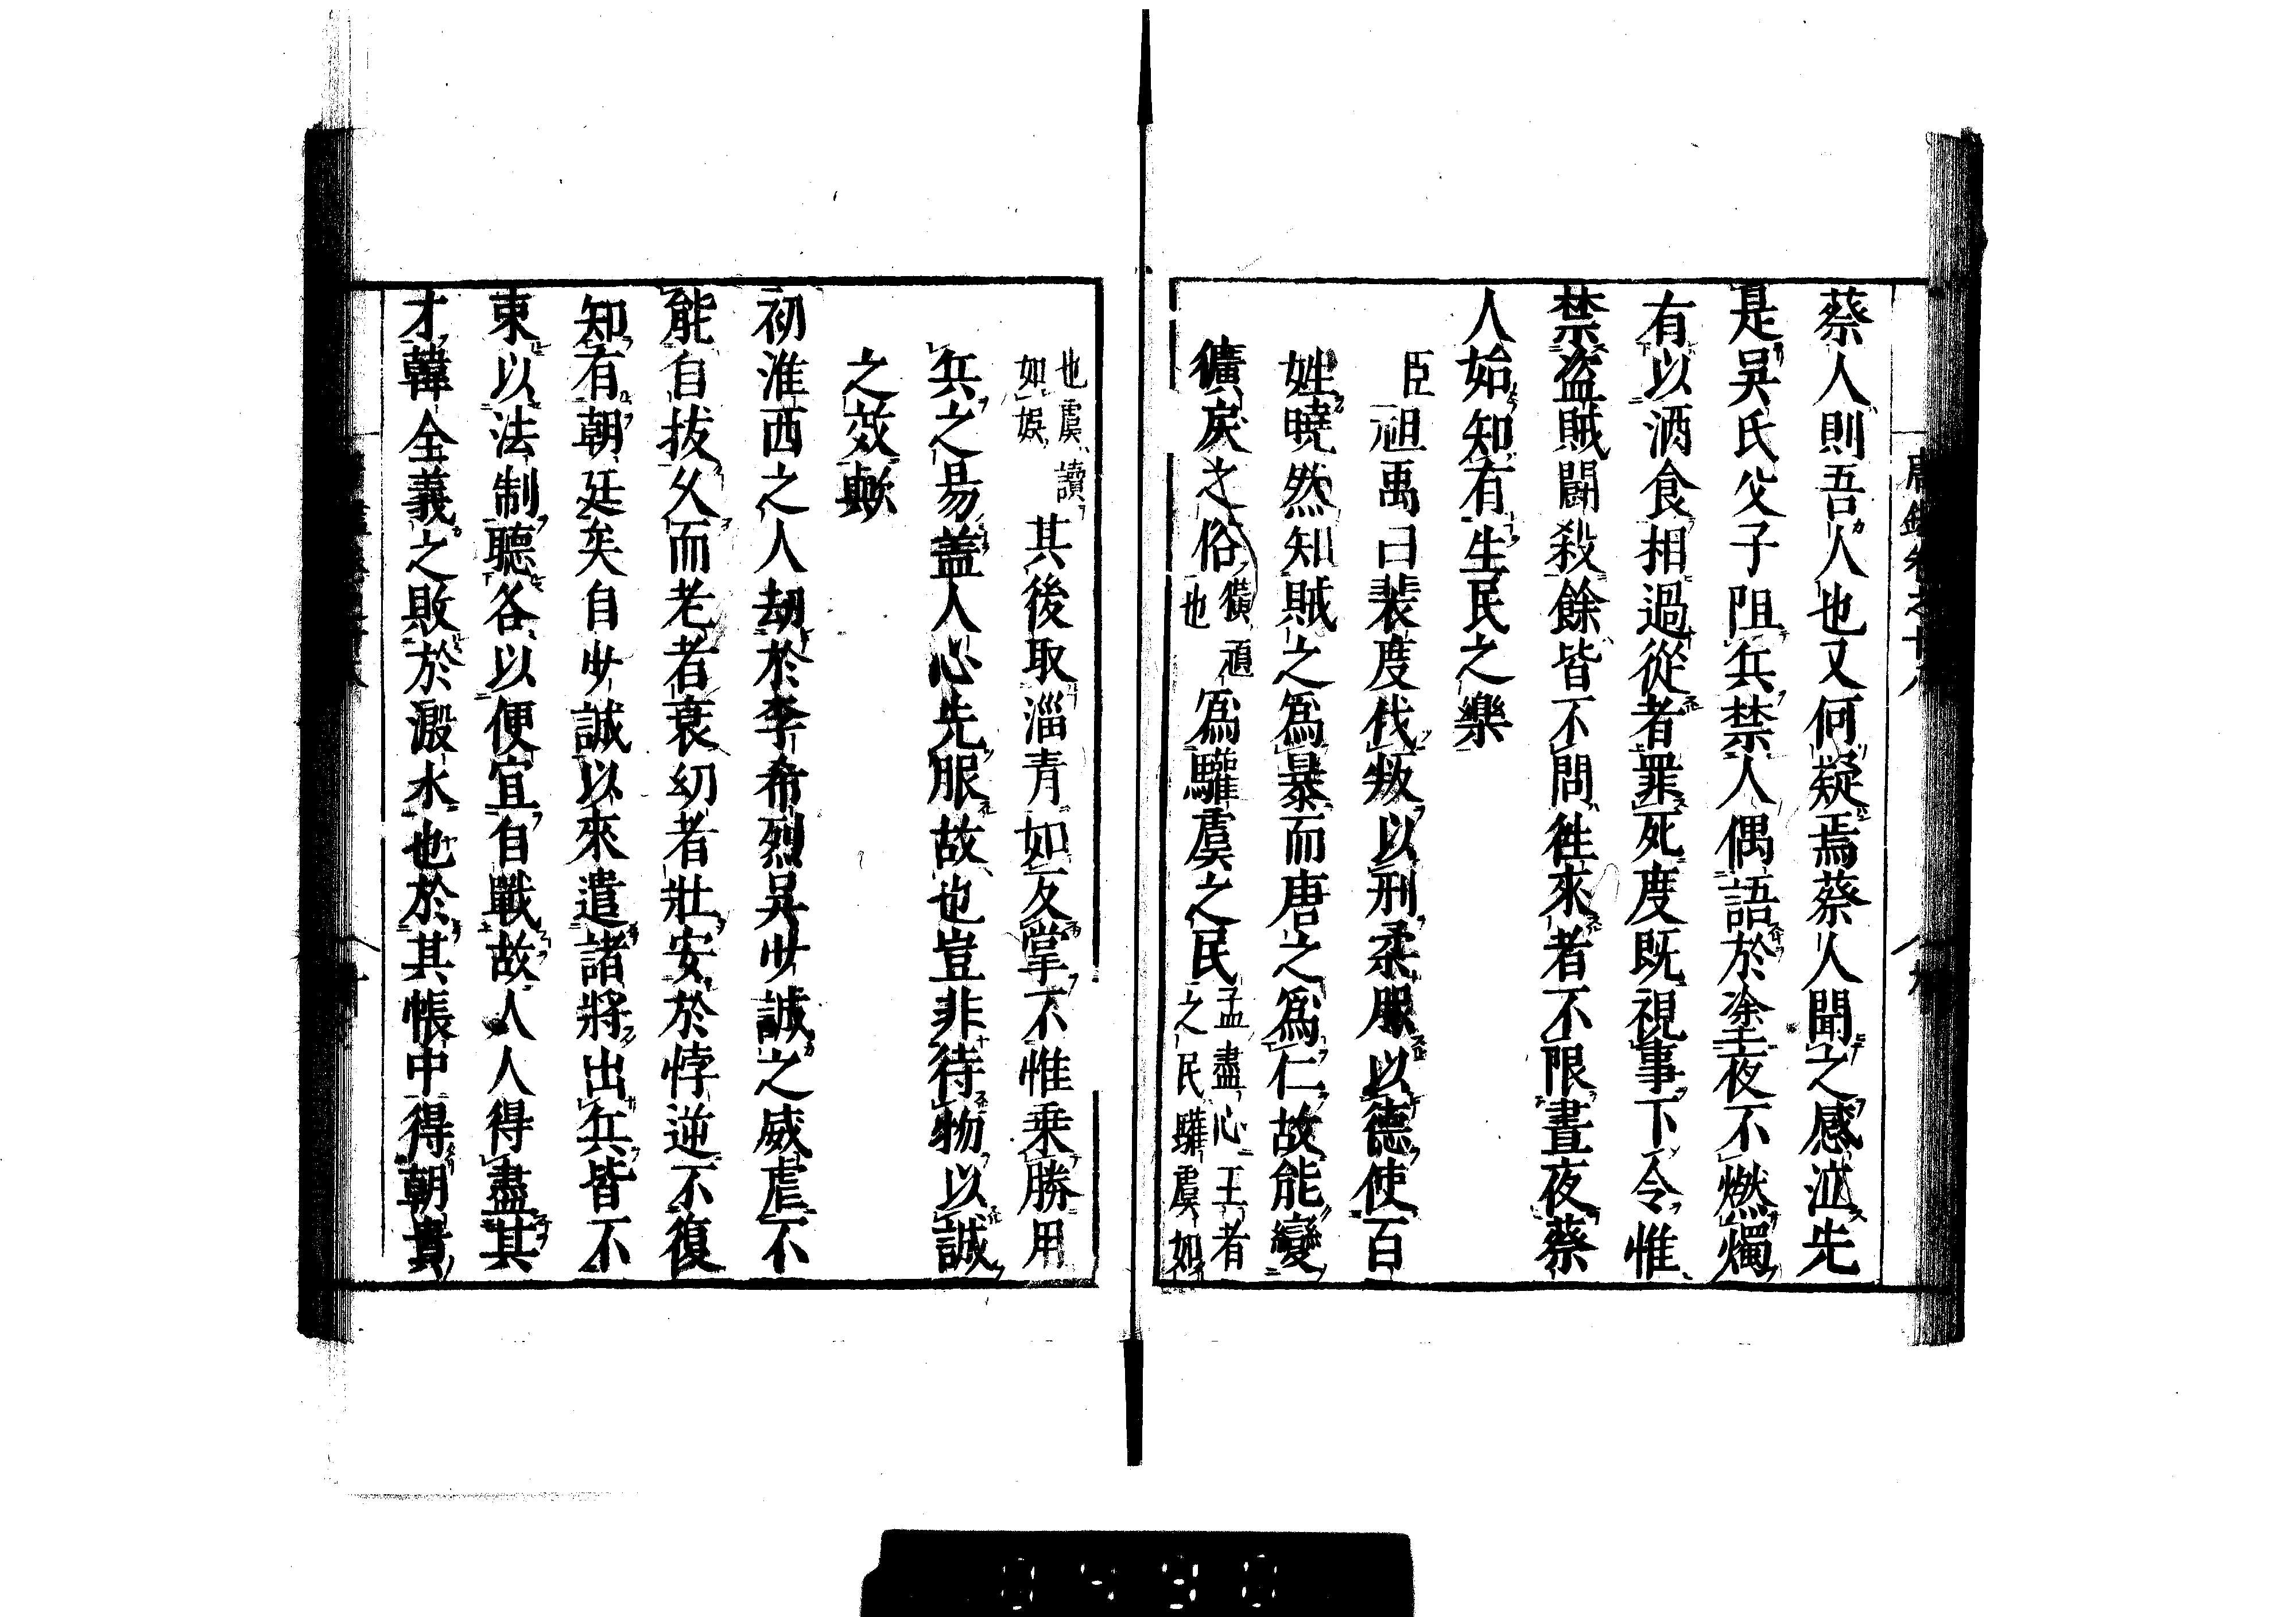 蔡人則吾人也又何疑焉蔡人聞之感泣先
是吳氏父子阻兵禁人偶語於塗夜不燃燭
有以酒食相過從者罪死度既視事下令惟
禁盜賊鬪殺餘皆不問徃來者不限晝夜蔡
人始知有生民之樂
臣祖禹曰裴度伐叛以刑柔服以德使百
姓曉然知賊之爲暴而唐之爲仁故能變
獷戾之俗獷頑也爲驩虞之民孟盡心王者之民驩虞如
也虞讀如娛其後取淄青如反掌不惟乗勝用
兵之易蓋人心先服故也豈非待物以誠
之效歟
初淮西之人劫於李希烈吳少誠之威虐不
能自拔久而老者衰幼者壯安於悖逆不復
知有朝廷矣自少誠以來遣諸將出兵皆不
束以法制聽各以便宜自戰故人人得盡其
才韓全義之敗於溵水也於其帳中得朝貴